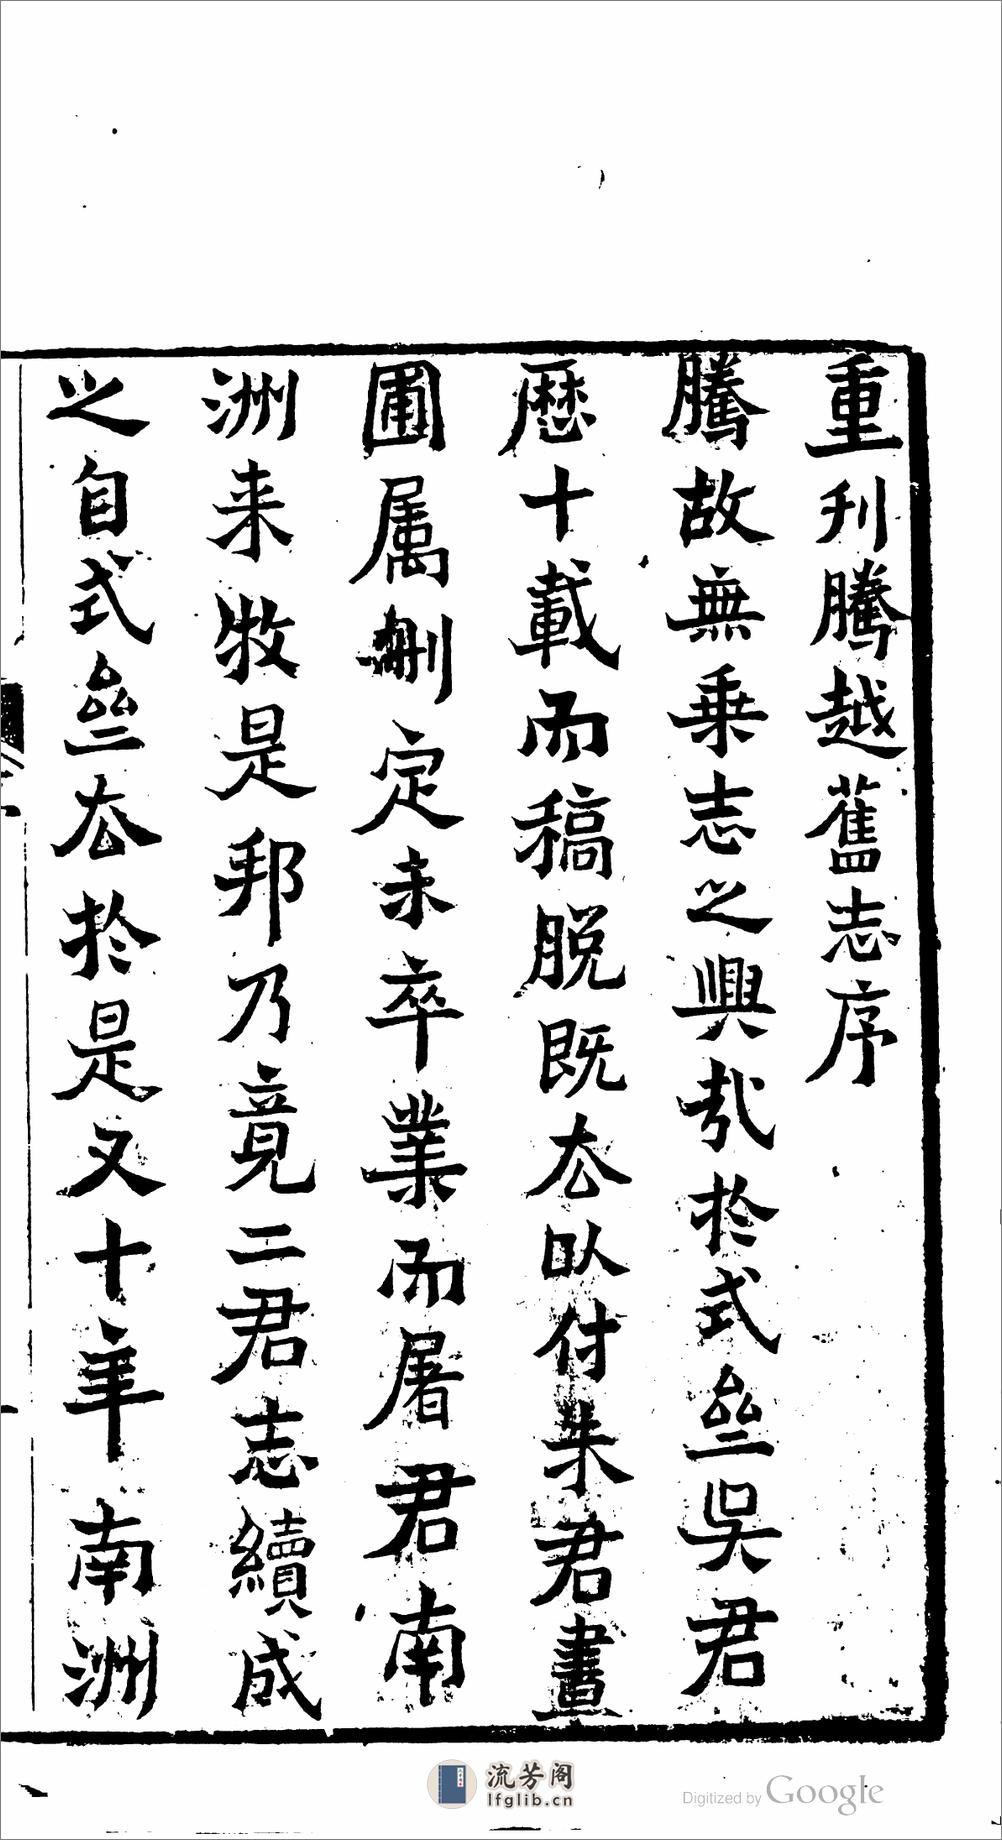 重刋騰越舊志序
騰故無乗志之興㪯於式叄吳君
厯十載而稿脱既厺㕥付朱君畫
圃属删定未卒業而屠君南
洲来牧是邦乃竟二君志續成
之自式叄厺於是又十年南洲
流芳阁
lfglib.cn
Digitized by Google